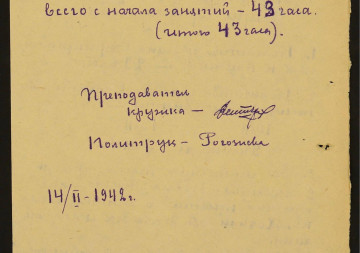 всего с начала занятий - 43 часа.
(итого 43 часа).
Преподаватель
кружка -
Политрук - Рогожева
14/II - 1942г.